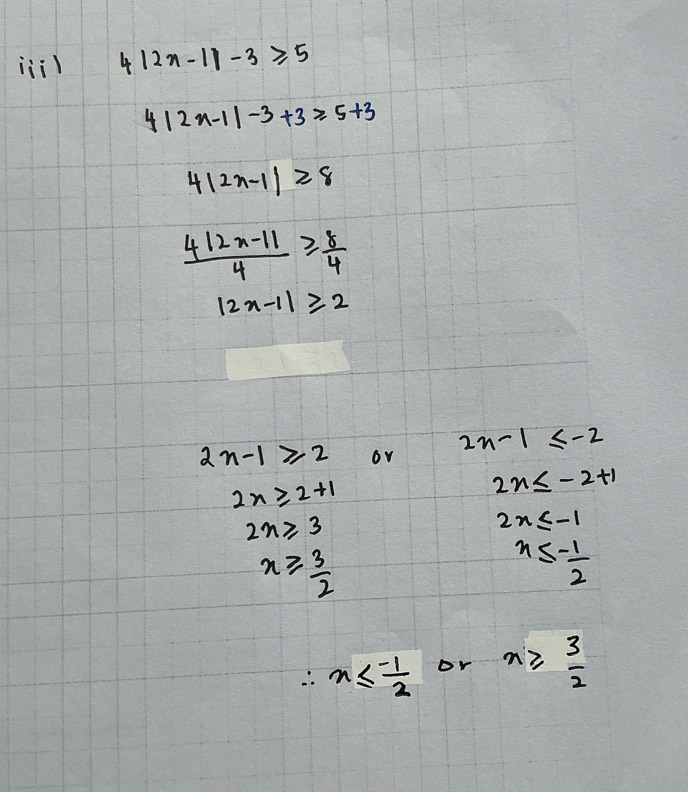 iii) 4|2x-1|-3 ≥ 5
4|2x-1|-3+3 ≥ 5+3
4|2x-1| ≥ 8
4|2x-1|/4 ≥ 8/4
|2x-1| ≥ 2
2x-1 ≥ 2 or 2x-1 ≤ -2
2x ≥ 2+1 2x ≤ -2+1
2x ≥ 3 2x ≤ -1
x ≥ 3/2 x ≤ -1/2
∴ x ≤ -1/2 or x ≥ 3/2